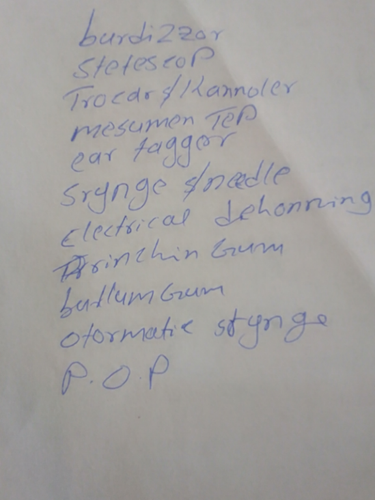 burdizzor
stetescoP
Trocar s/Kannoler
mesumen TeP
ear tagger
Srynge s/needle
Electrical dehorning
Drinchin Gum
bullum Gum
otormatic strynge
P.O.P